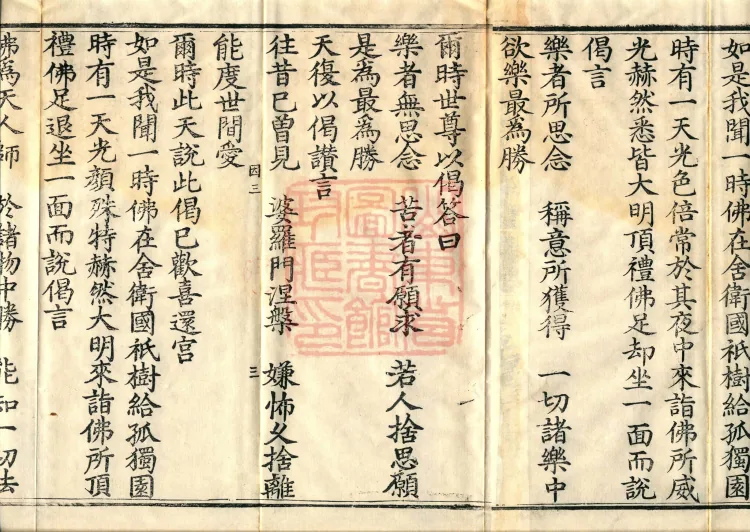 如是我聞一時佛在舍衛國祇樹給孤獨園
時有一天光色倍常於其夜中來詣佛所威
光赫然悉皆大明頂禮佛足却坐一面而說
偈言
樂者所思念 稱意所獲得 一切諸樂中
欲樂最為勝
爾時世尊以偈答曰
樂者無思念 苦者有願求 若人捨思願
是為最為勝
天復以偈讚言
往昔已曾見 婆羅門涅槃 嫌怖久捨離
能度世間愛
因三 三
爾時此天說此偈已歡喜還宮
如是我聞一時佛在舍衛國祇樹給孤獨園
時有一天光顏殊特赫然大明來詣佛所頂
禮佛足退坐一面而說偈言
佛為天人師 於諸物中勝 能知一切法